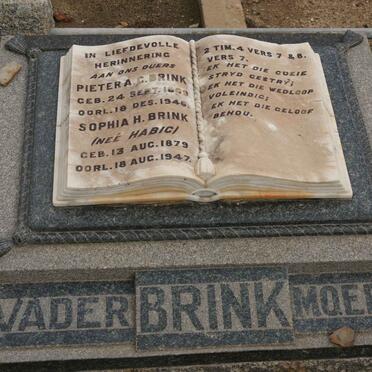 IN LIEFDEVOLLE
HERINNERING
AAN ONS OUERS
PIETER A. C. BRINK
GEB. 24 SEPT.
OORL. 18 DES. 1946
SOPHIA H. BRINK
(NEÉ HABIG)
GEB. 13 AUG. 1879
OORL. 18 AUG. 1947.
2 TIM. 4 VERS 7 & 8.
VERS 7.
EK HET DIE GOEIE
STRYD GESTRY;
EK HET DIE WEDLOOP
VOLEINDIG;
EK HET DIE GELOOF
BEHOU.
VADER BRINK MOE